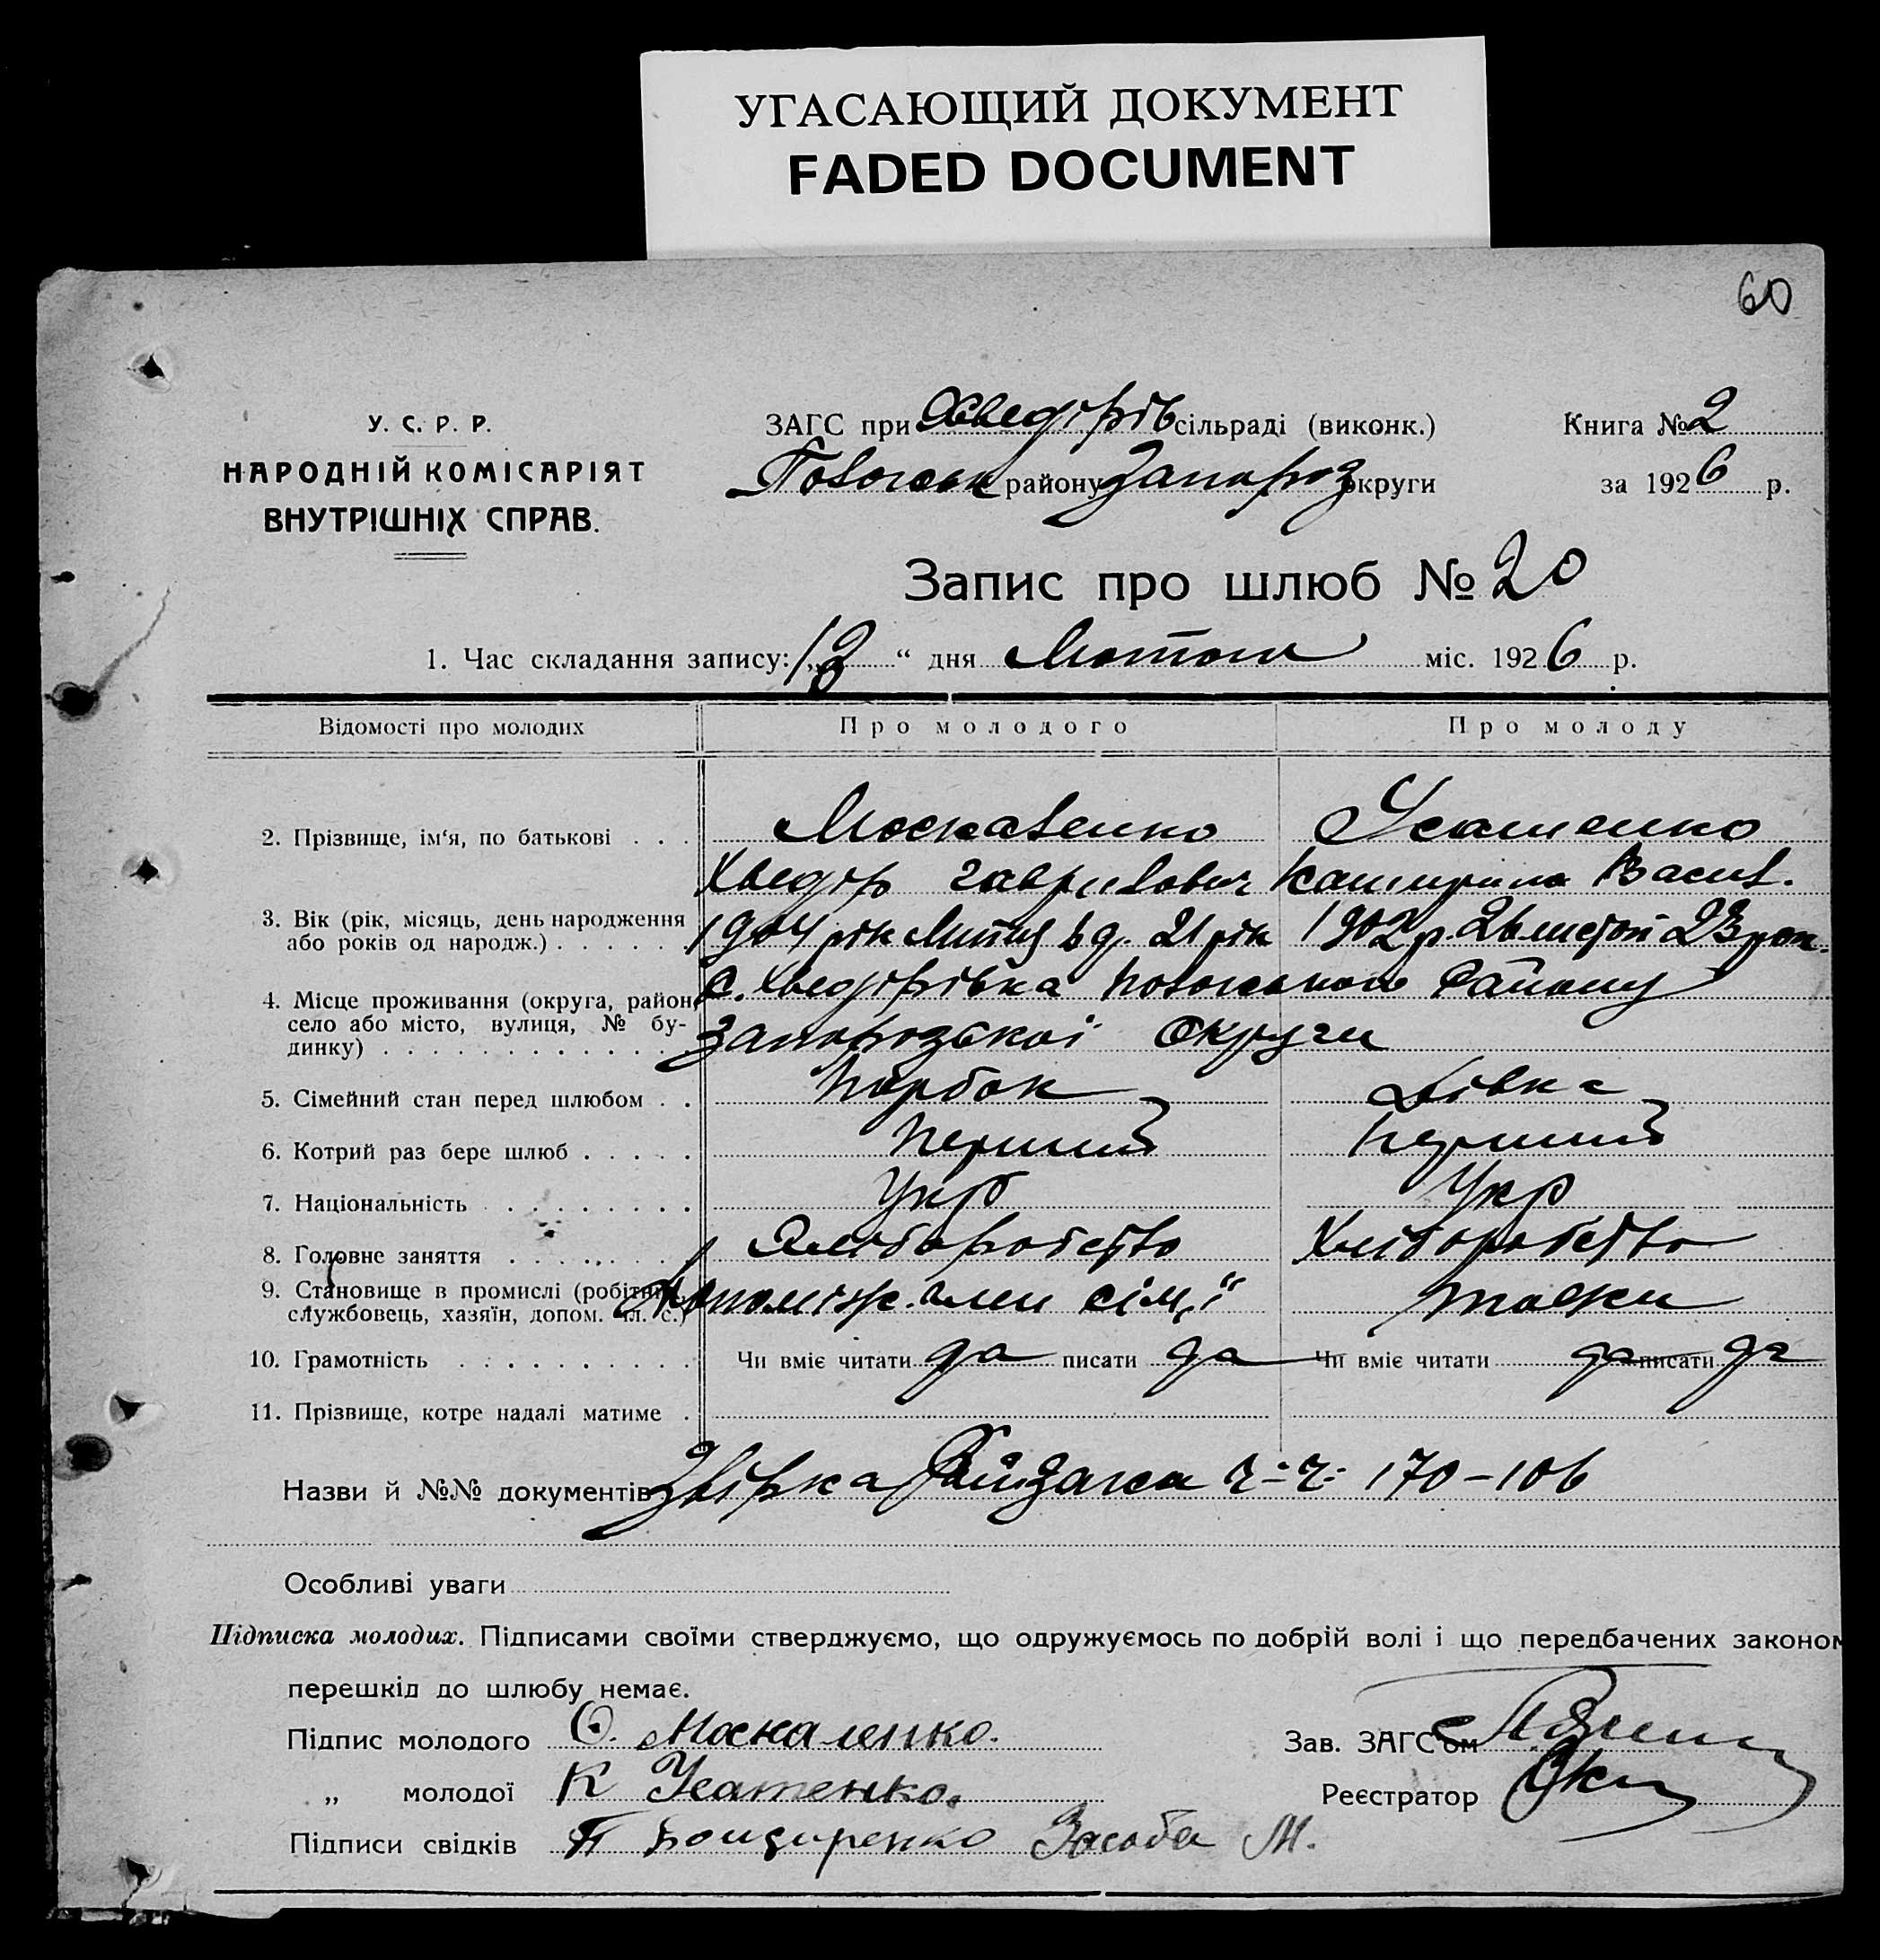 УГАСАЮЩИЙ ДОКУМЕНТ
FADED DOCUMENT
60
У. С. Р. Р.
НАРОДНІЙ КОМІСАРІЯТ
ВНУТРІШНІХ СПРАВ.
ЗАГС при Хведірів сільраді (виконк.)
району Запороз округи
Книга № 2
за 1926 р.
Запис про шлюб № 20
1. Час складання запису: „ “ дня Лютого міс. 1926 р.
Відомості про молодих Про молодого Про молоду
2. Прізвище, ім‘я, по батькові . . . Москаленко Усатенко
Хведір Гаврилович Катирина Васил.
3. Вік (рік, місяць, день народження
або років од народж.) . . . . . . 1904 рік 21 рік 1902 р. 26 23 рок.
4. Місце проживання (округа, район,
село або місто, вулиця, № бу-
динку) . . . . . . . . . . . .
с. Хведірівка Пологського Району
Запорозької Округи
5. Сімейний стан перед шлюбом . . Парбок Дівка
6. Котрий раз бере шлюб . . . . . Перший Перший
7. Національність . . . . . . . . Укр Укр
8. Головне заняття . . . . . . . Хліборобство Хліборобство
9. Становище в промислі (робітник,
службовець, хазяїн, допом. чл. с.) Допоміж. член сімї
10. Грамотність . . . . . . . . . . Чи вміє читати да писати да Чи вміє читати да писати да
11. Прізвище, котре надалі матиме .
Назви й №№ документів Звірка Райзагса 170-106
Особливі уваги
Підписка молодих. Підписами своїми стверджуємо, що одружуємось по добрій волі і що передбачених законом
перешкід до шлюбу немає.
Підпис молодого Ѳ. Москаленко.
Зав. ЗАГС‘ом
„ молодої К Усатенко.
Реєстратор
Підписи свідків П Бондиренко Засоба М.